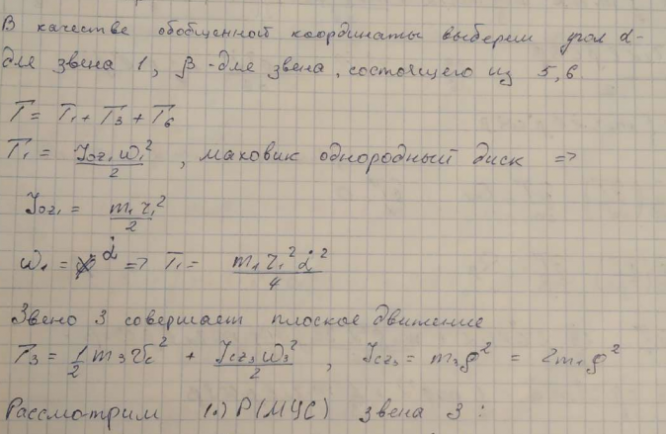 В качестве обобщенной координаты выберем угол α-
для звена 1, β - для звена, состоящего из 5, 6
T = T₁ + T₃ + T₆
T₁ = Joz₁ω₁²/2, маховик однородный диск =>
Joz₁ = m₁r₁²/2
ω₁ = α̇ => T₁ = m₁r₁²α̇²/4
Звено 3 совершает плоское движение
T₃ = 1/2 m₃v_c² + Jcz₃ω₃²/2, Jcz₃ = m₃ρ² = 2m₁ρ²
Рассмотрим (·) P (МЦС) звена 3: